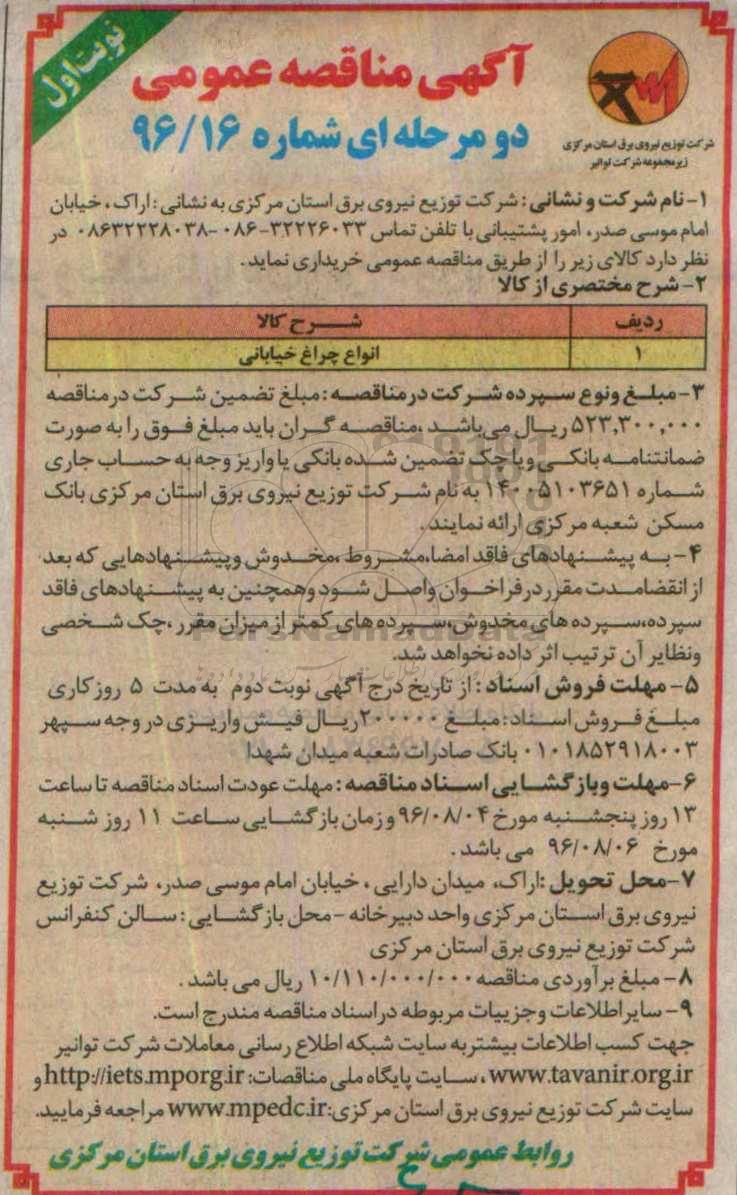 نوبت اول
آگهی مناقصه عمومی
دو مرحله ای شماره ۹۶/۱۶
شرکت توزیع نیروی برق استان مرکزی
زیرمجموعه شرکت توانیر
۱- نام شرکت و نشانی : شرکت توزیع نیروی برق استان مرکزی به نشانی : اراک ، خیابان
امام موسی صدر، امور پشتیبانی با تلفن تماس ۳۲۲۲۶۰۳۳-۰۸۶ -۰۸۶۳۲۲۲۸۰۳۸ در
نظر دارد کالای زیر را از طریق مناقصه عمومی خریداری نماید .
۲- شرح مختصری از کالا
ردیف شرح کالا
۱ انواع چراغ خیابانی
۳- مبلغ ونوع سپرده شرکت در مناقصه : مبلغ تضمین شرکت در مناقصه
۵۲۳,۳۰۰,۰۰۰ ریال می باشد ،مناقصه گران باید مبلغ فوق را به صورت
ضمانتنامه بانکی و یا چک تضمین شده بانکی یا واریز وجه به حساب جاری
شماره ۱۴۰۰۵۱۰۳۶۵۱ به نام شرکت توزیع نیروی برق استان مرکزی بانک
مسکن شعبه مرکزی ارائه نمایند .
۴- به پیشنهادهای فاقد امضا،مشروط ،مخدوش وپیشنهادهایی که بعد
از انقضامدت مقرر در فراخوان واصل شود وهمچنین به پیشنهادهای فاقد
سپرده،سپرده های مخدوش،سپرده های کمتر از میزان مقرر ،چک شخصی
ونظایر آن ترتیب اثر داده نخواهد شد.
ParsNamadData
۵- مهلت فروش اسناد : از تاریخ درج آگهی نوبت دوم به مدت ۵ روز کاری
مبلغ فروش اسناد : مبلغ ۲۰۰۰۰۰ ریال فیش واریزی در وجه سپهر
۰۱۰۱۸۵۲۹۱۸۰۰۳ بانک صادرات شعبه میدان شهدا
۶- مهلت وبازگشایی اسناد مناقصه : مهلت عودت اسناد مناقصه تا ساعت
۱۳ روز پنجشنبه مورخ ۹۶/۰۸/۰۴ و زمان بازگشایی ساعت ۱۱ روز شنبه
مورخ ۹۶/۰۸/۰۶ می باشد .
۷-محل تحویل :اراک، میدان دارایی ، خیابان امام موسی صدر، شرکت توزیع
نیروی برق استان مرکزی واحد دبیرخانه - محل بازگشایی : سالن کنفرانس
شرکت توزیع نیروی برق استان مرکزی
۸- مبلغ برآوردی مناقصه ۱۰/۱۱۰/۰۰۰/۰۰۰ ریال می باشد .
۹- سایر اطلاعات وجزییات مربوطه در اسناد مناقصه مندرج است.
جهت کسب اطلاعات بیشتر به سایت شبکه اطلاع رسانی معاملات شرکت توانیر
www.tavanir.org.ir ، سایت پایگاه ملی مناقصات: http://iets.mporg.ir و
سایت شرکت توزیع نیروی برق استان مرکزی:www.mpedc.ir مراجعه فرمایید.
روابط عمومی شرکت توزیع نیروی برق استان مرکزی